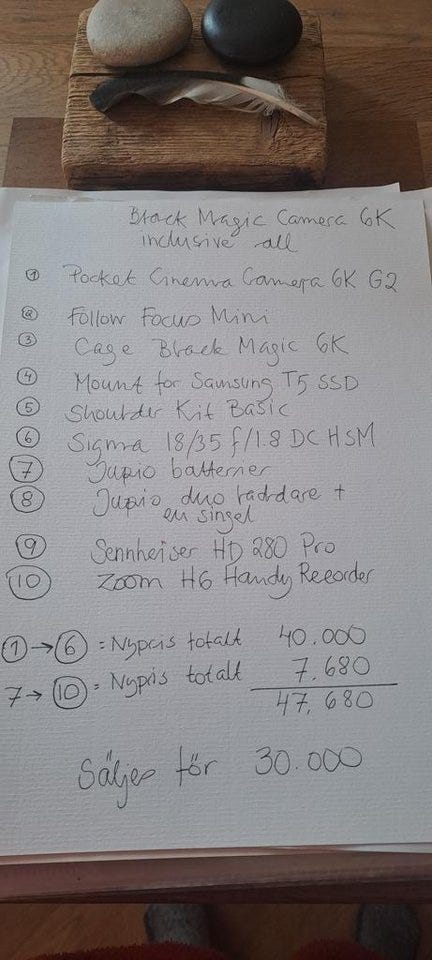 Black Magic Camera 6K
inclusive all
① Pocket Cinema Camera 6K G2
② Follow Focus Mini
③ Cage Black Magic 6K
④ Mount for Samsung T5 SSD
⑤ Shoulder Kit Basic
⑥ Sigma 18/35 f/1.8 DC HSM
⑦ Jupio batterier
⑧ Jupio duo laddare +
en singel
⑨ Sennheiser HD 280 Pro
⑩ Zoom H6 Handy Recorder
① → ⑥ = Nypris totalt 40.000
7 → ⑩ = Nypris totalt 7.680
47.680
Säljes för 30.000